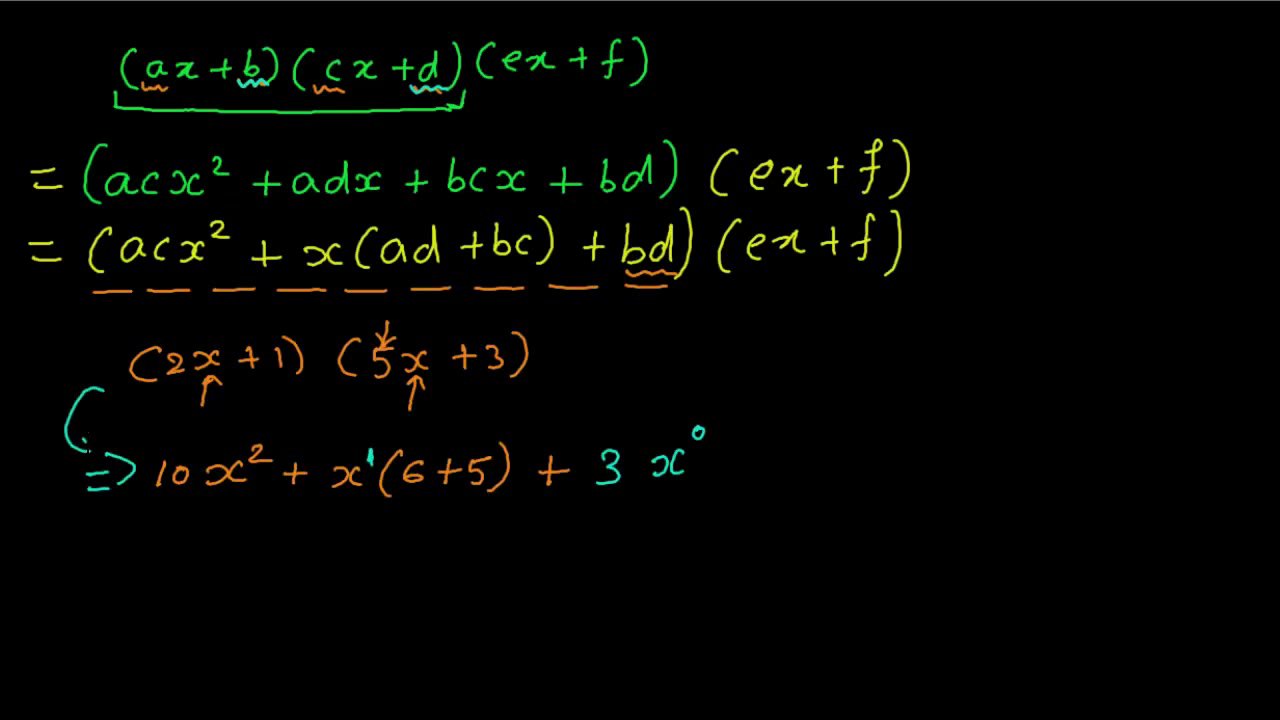 (ax+b)(cx+d)(ex+f)
=(acx²+adx+bcx+bd)(ex+f)
=(acx²+x(ad+bc)+bd)(ex+f)
(2x+1)(5x+3)
=> 10x²+x¹(6+5)+3x⁰